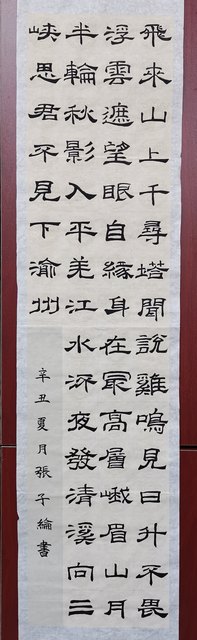 飛來山上千尋塔聞說雞鳴見日升不畏
浮雲遮望眼自緣身在最高層峨眉山月
半輪秋影入平羌江水流夜發清溪向三
峽思君不見下渝州
辛丑夏月張子綸書